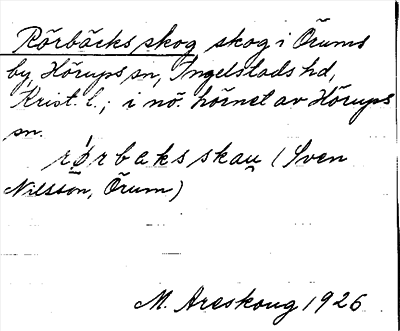 Rörbäcks skog skog i Örums
by, Hörups sn, Ingelstads hd,
Krist. l.; i nö. hörnet av Hörups
sn.
rö́rbaksskau̯ (Sven
Nilsson, Örum)
M. Areskoug 1926